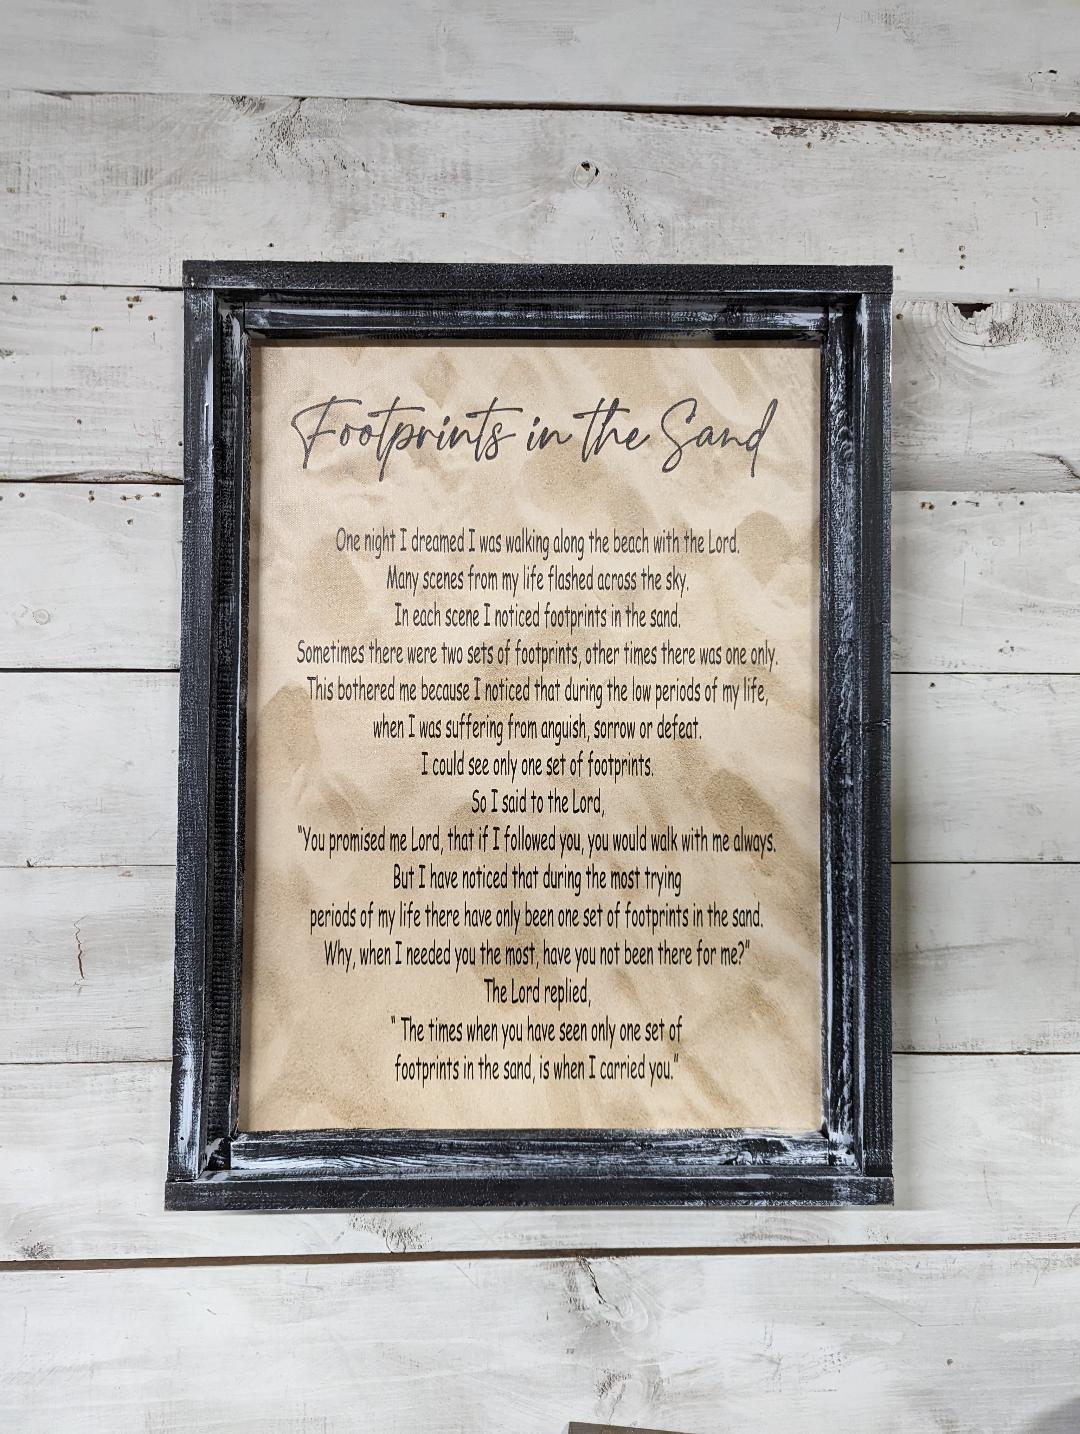 Footprints in the Sand
One night I dreamed I was walking along the beach with the Lord.
Many scenes from my life flashed across the sky.
In each scene I noticed footprints in the sand.
Sometimes there were two sets of footprints, other times there was one only.
This bothered me because I noticed that during the low periods of my life,
when I was suffering from anguish, sorrow or defeat.
I could see only one set of footprints.
So I said to the Lord,
"You promised me Lord, that if I followed you, you would walk with me always.
But I have noticed that during the most trying
periods of my life there have only been one set of footprints in the sand.
Why, when I needed you the most, have you not been there for me?"
The Lord replied,
" The times when you have seen only one set of
footprints in the sand, is when I carried you."